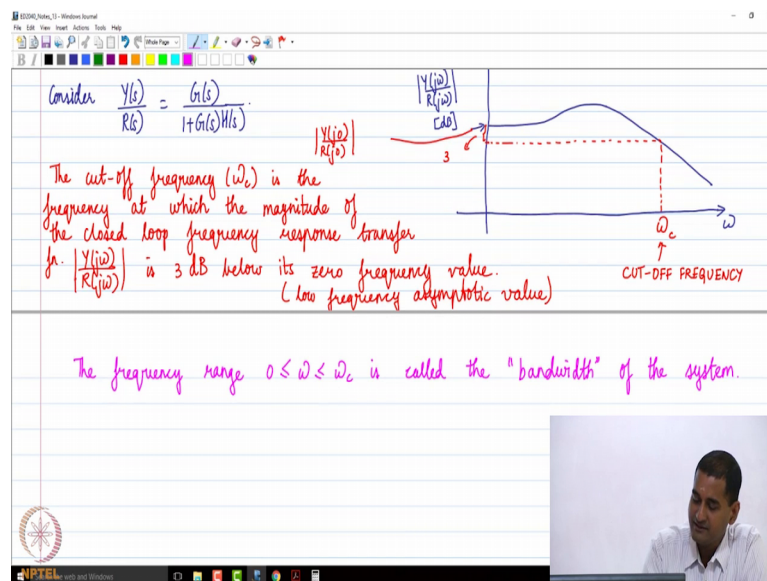 ED2040_Notes_13 - Windows Journal
File Edit View Insert Actions Tools Help
Whole Page
Consider Y(s)/R(s) = G(s)/(1+G(s)H(s)).
|Y(jω)/R(jω)|
[dB]
|Y(j0)/R(j0)|
3
ω_c
ω
CUT-OFF FREQUENCY
The cut-off frequency (ω_c) is the
frequency at which the magnitude of
the closed loop frequency response transfer
fn. |Y(jω)/R(jω)| is 3 dB below its zero frequency value.
(low frequency asymptotic value)
The frequency range 0 ≤ ω ≤ ω_c is called the "bandwidth" of the system.
NPTEL
web and Windows